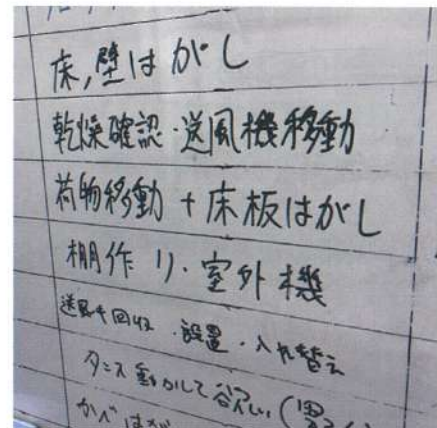 床,壁はがし
乾燥確認・送風機移動
荷物移動+床板はがし
棚作り・室外機
送風キ回収・設置・入れ替え
タンス動かして欲しい(
かべはが